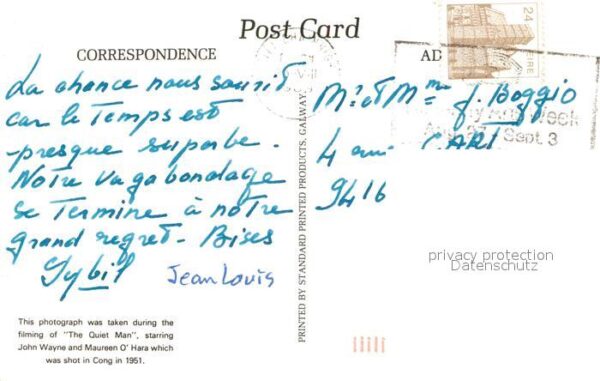 Post Card
CORRESPONDENCE
AD
24
EIRE
La chance nous sourit
car le Temps est
presque superbe.
Notre vagabondage
se Termine à notre
grand regret - Bises
Sybil
Jean Louis
Mr et Mme J. Boggio
4
CART
9416
Week
Sept. 3
PRINTED BY STANDARD PRINTED PRODUCTS, GALWAY.
privacy protection
Datenschutz
This photograph was taken during the
filming of "The Quiet Man", starring
John Wayne and Maureen O' Hara which
was shot in Cong in 1951.